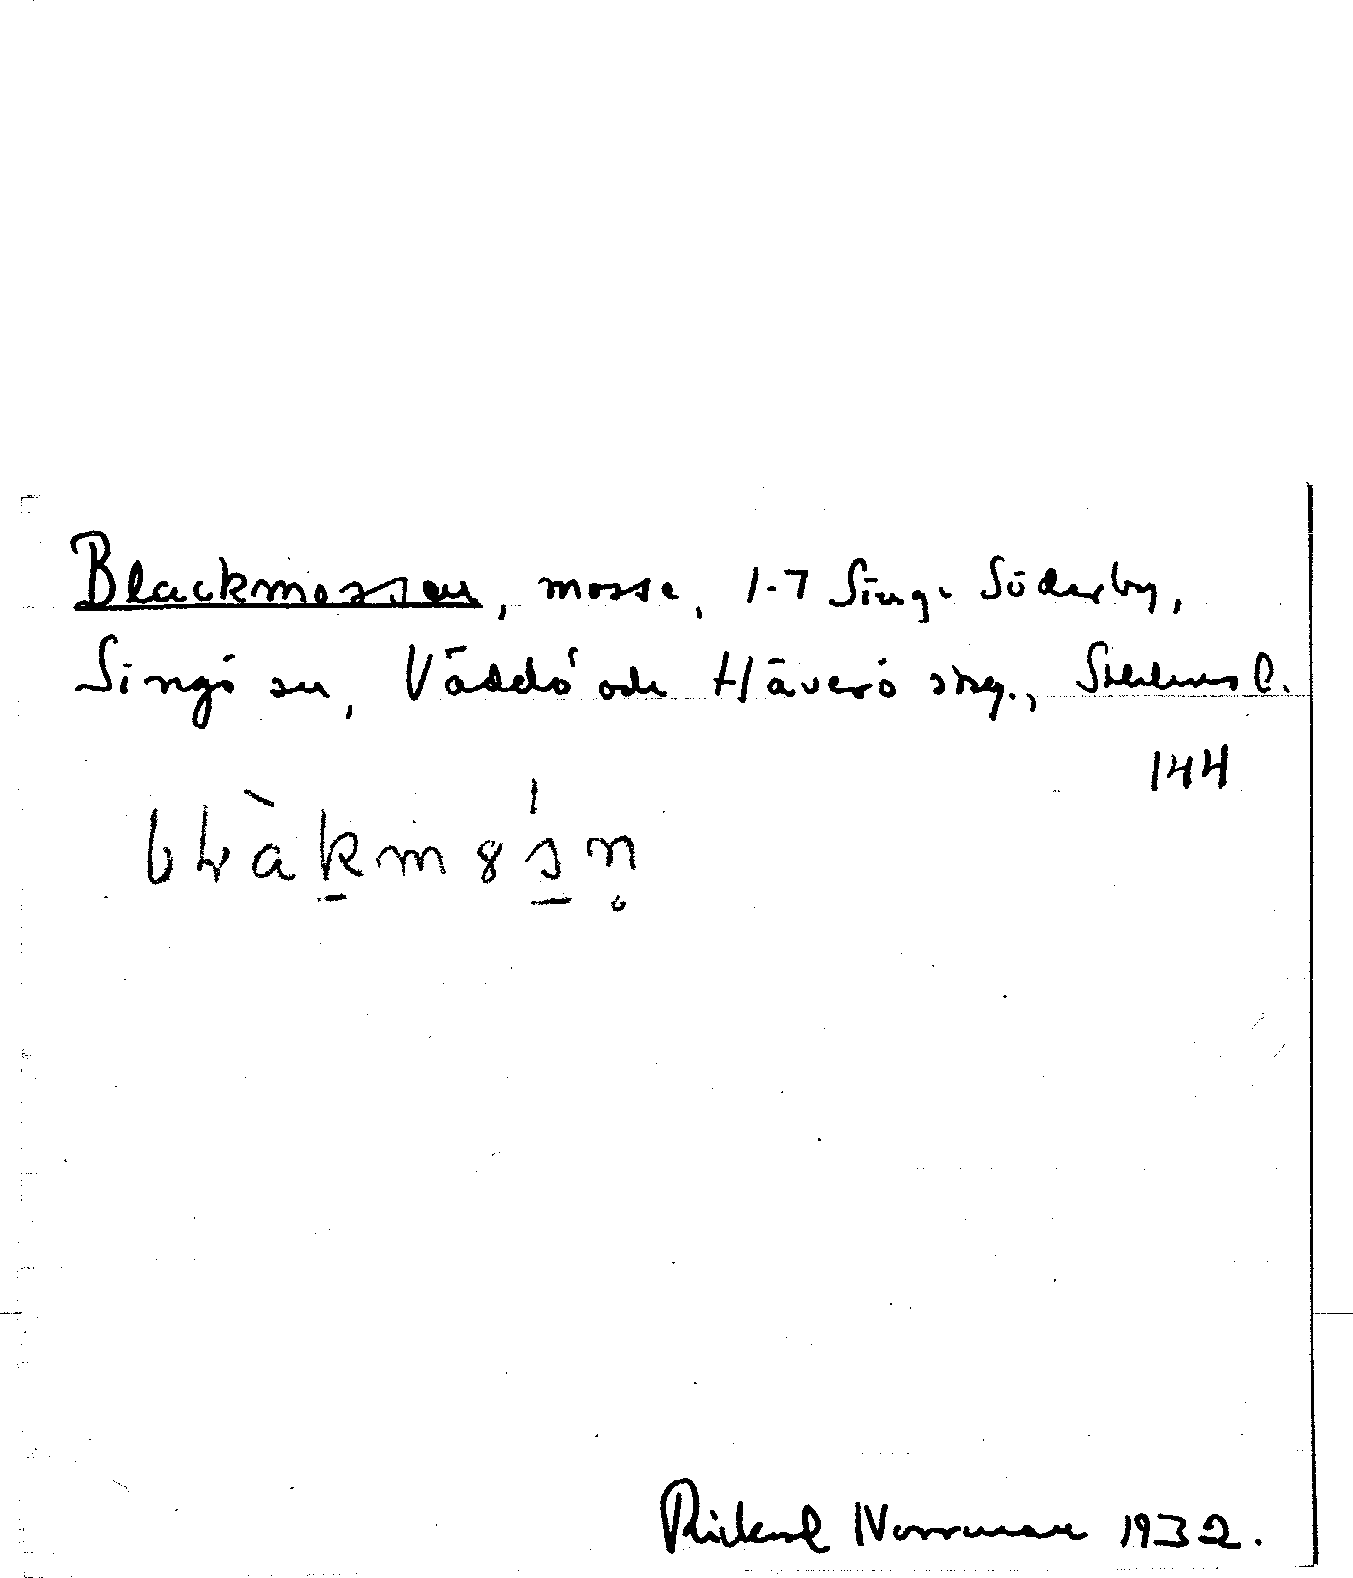 Blackmossen, mosse, 1-7 Sing. Söderby,
Singö sn, Väddö och Häverö skg., Sthlms l.
144
Rickard Norrman 1932.